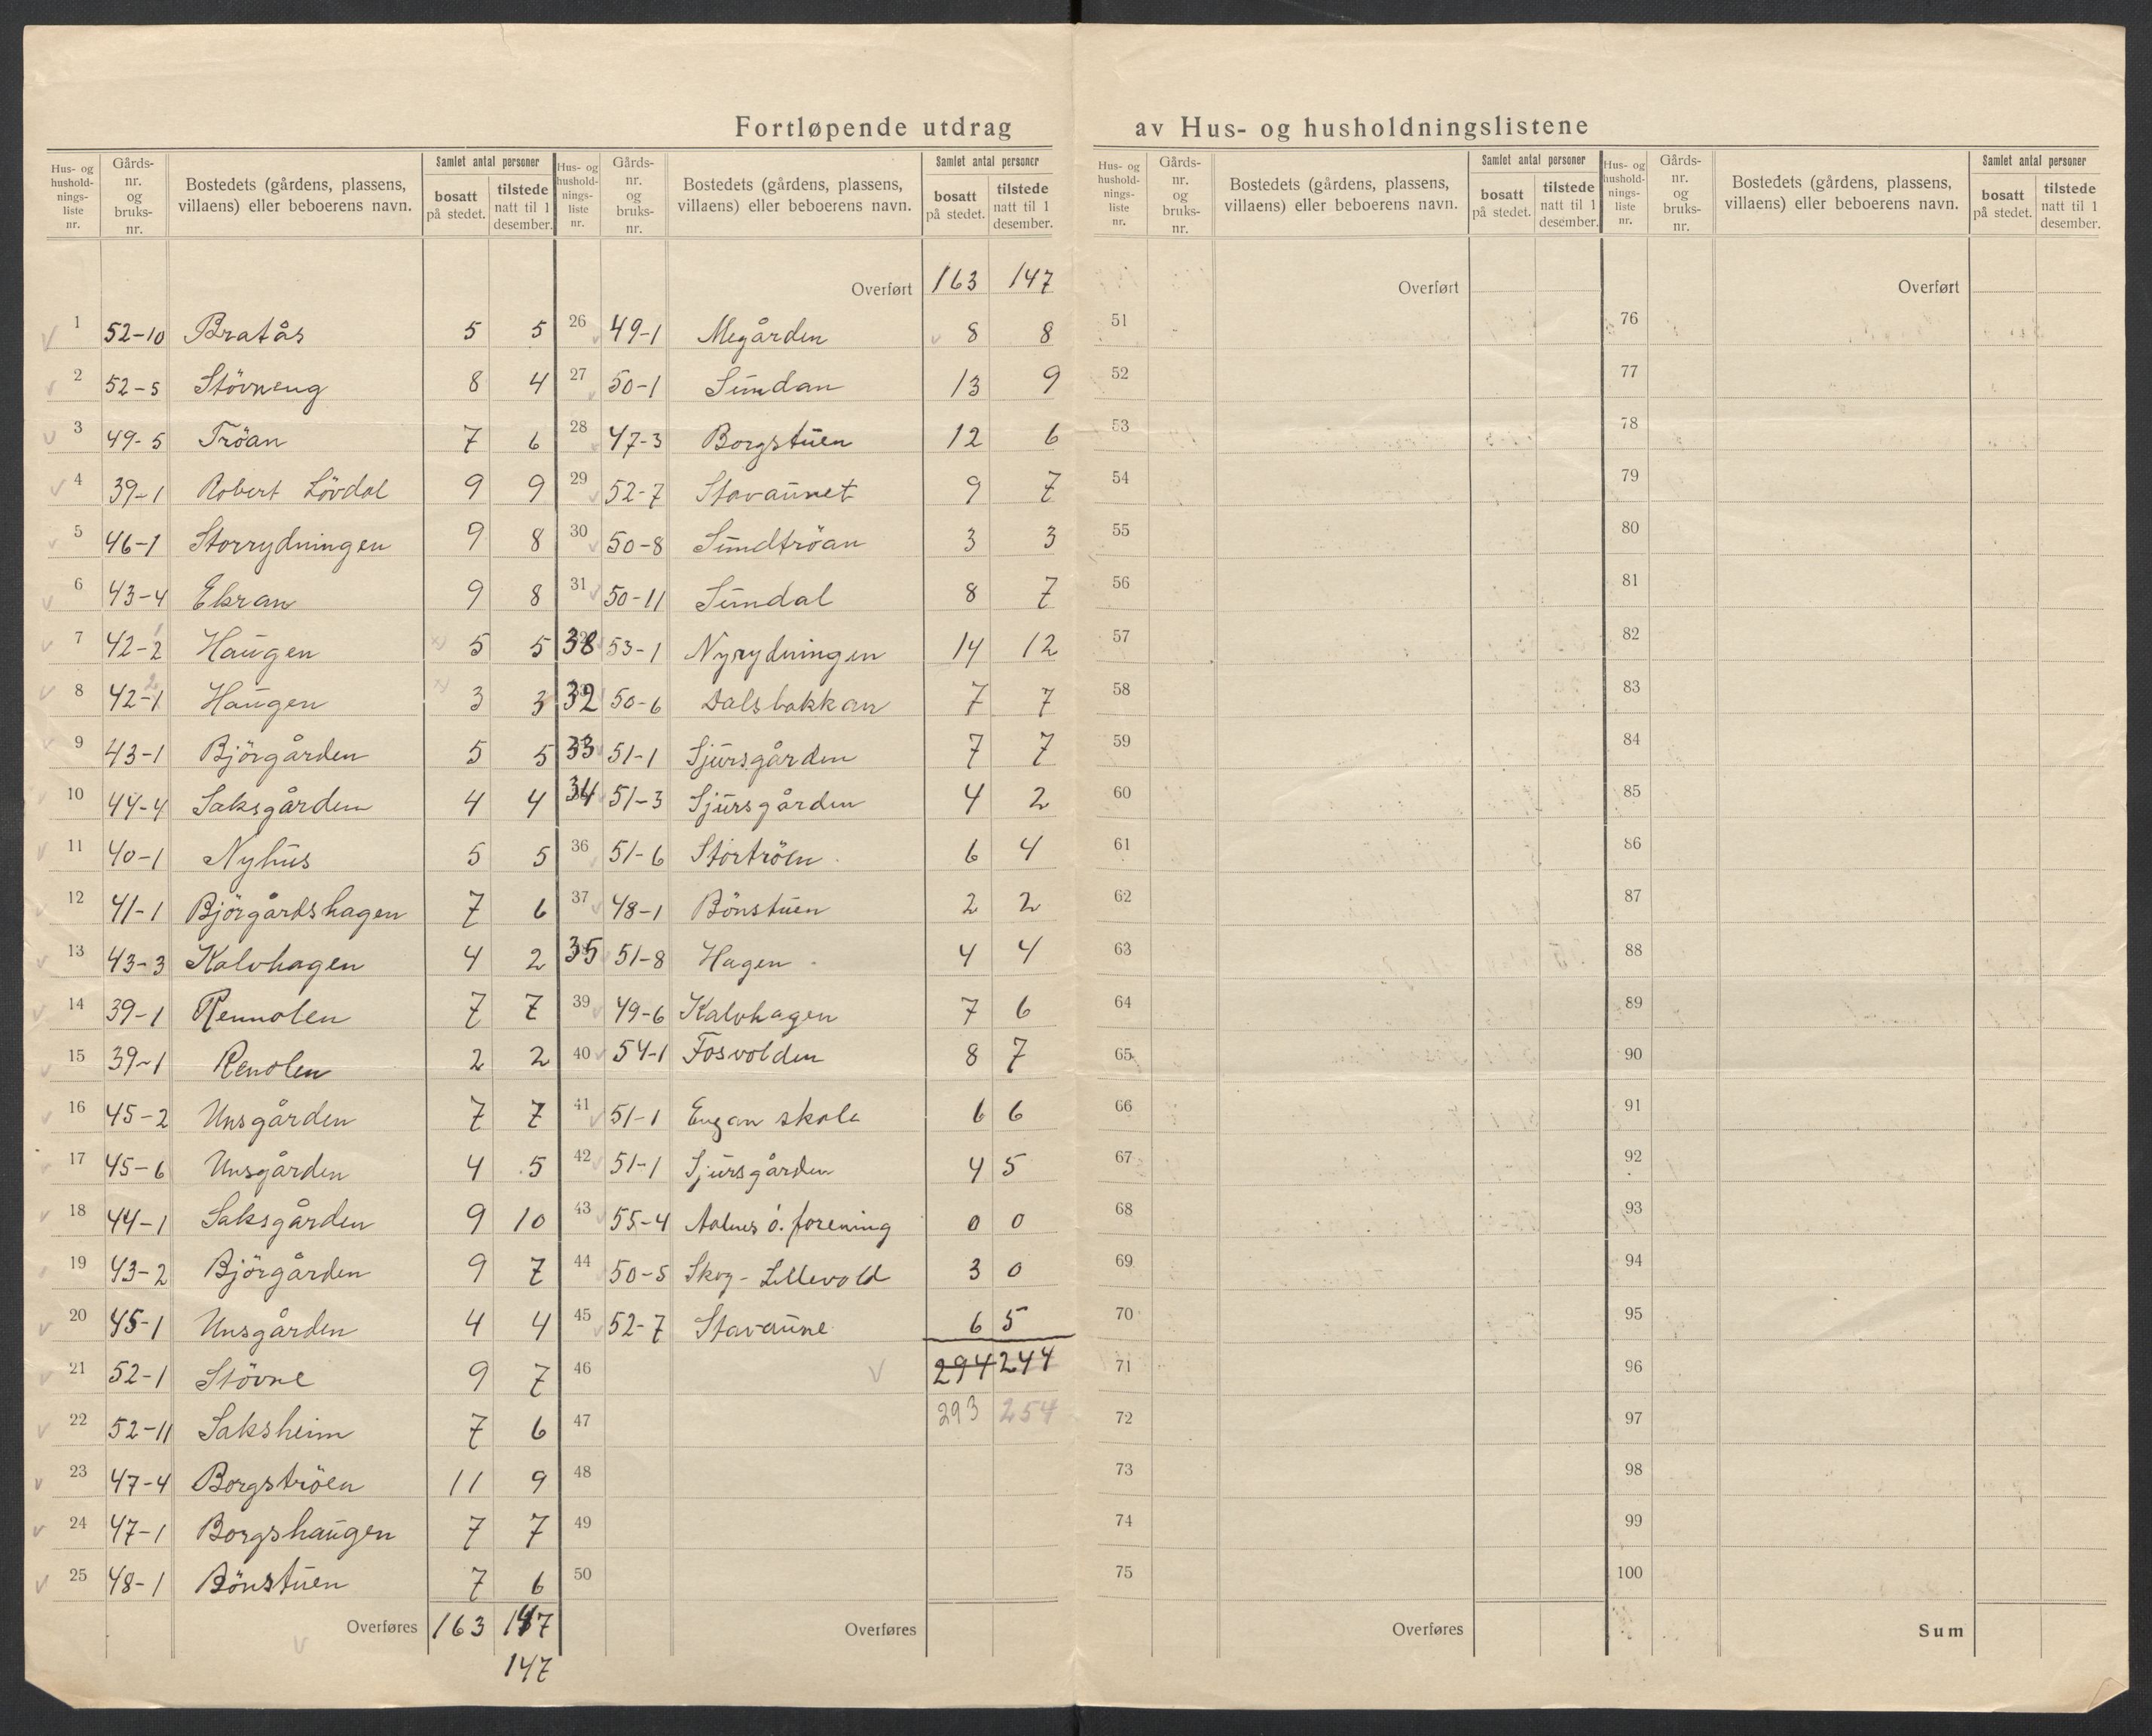 Fortløpende utdrag av Hus- og husholdningslistene
Hus- og hushold-nings-liste nr. | Gårds-nr. og bruks-nr. | Bostedets (gårdens, plassens, villaens) eller beboerens navn. | Samlet antal personer | bosatt på stedet. | tilstede natt til 1 desember.
1 52-10 Bratås 5 5
2 52-5 Stövneng 8 4
3 49-5 Tröan 7 6
4 39-1 Robert Lövdal 9 9
5 46-1 Storrydningen 9 8
6 43-4 Ekran 9 8
7 42-2 Haugen 5 5
8 42-1 Haugen 3 3
9 43-1 Björgården 5 5
10 44-4 Saksgården 4 4
11 40-1 Nyhus 5 5
12 41-1 Björgårdshagen 7 6
13 43-3 Kalvhagen 4 2
14 39-1 Rennolen 7 7
15 39-1 Renolen 2 2
16 45-2 Unsgården 7 7
17 45-6 Unsgården 4 5
18 44-1 Saksgården 9 10
19 43-2 Björgården 9 7
20 45-1 Unsgården 4 4
21 52-1 Stövne 9 7
22 52-11 Saksheim 7 6
23 47-4 Borgströen 11 9
24 47-1 Borgshaugen 7 7
25 48-1 Bönstuen 7 6
Overføres 163 147
147
Hus- og hushold-nings-liste nr. | Gårds-nr. og bruks-nr. | Bostedets (gårdens, plassens, villaens) eller beboerens navn. | Samlet antal personer | bosatt på stedet. | tilstede natt til 1 desember.
Overført 163 147
26 49-1 Megården 8 8
27 50-1 Sundan 13 9
28 47-3 Borgstuen 12 6
29 52-7 Stavaunet 9 7
30 50-8 Sundtröan 3 3
31 50-11 Sundal 8 7
38 53-1 Nyrydningen 14 12
32 50-6 Dalsbakkan 7 7
33 51-1 Sjursgården 7 7
34 51-3 Sjursgården 4 2
36 51-6 Stortröen 6 4
37 48-1 Bönstuen 2 2
35 51-8 Hagen 4 4
39 49-6 Kalvhagen 7 6
40 54-1 Fosvolden 8 7
41 51-1 Engan skole 6 6
42 51-1 Sjursgården 4 5
43 55-4 Aalnes ö. forening 0 0
44 50-5 Skog-Lillevold 3 0
45 52-7 Stavaune 6 5
46 294 244
47 293 254
48
49
50
Overføres
Hus- og hushold-nings-liste nr. | Gårds-nr. og bruks-nr. | Bostedets (gårdens, plassens, villaens) eller beboerens navn. | Samlet antal personer | bosatt på stedet. | tilstede natt til 1 desember.
Overført
51
52
53
54
55
56
57
58
59
60
61
62
63
64
65
66
67
68
69
70
71
72
73
74
75
Overføres
Hus- og hushold-nings-liste nr. | Gårds-nr. og bruks-nr. | Bostedets (gårdens, plassens, villaens) eller beboerens navn. | Samlet antal personer | bosatt på stedet. | tilstede natt til 1 desember.
Overført
76
77
78
79
80
81
82
83
84
85
86
87
88
89
90
91
92
93
94
95
96
97
98
99
100
Sum